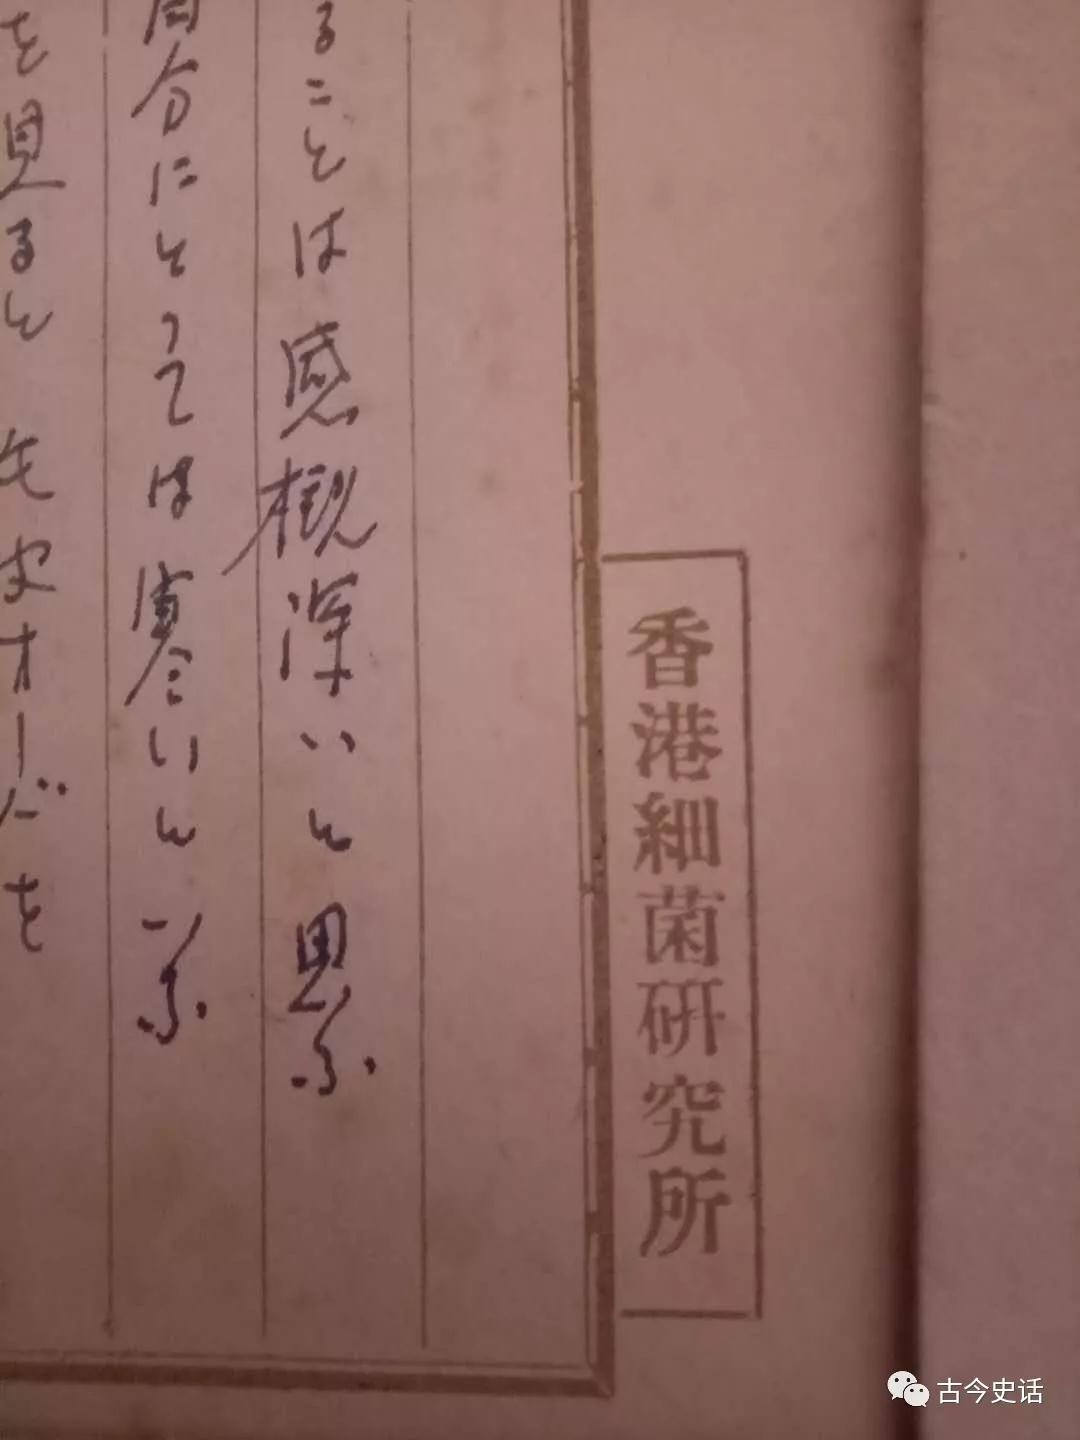 香港細菌研究所
ることは感概深いと思ふ
自分にとっては寒いと思ふ
を見ると先づオーバを
古今史话